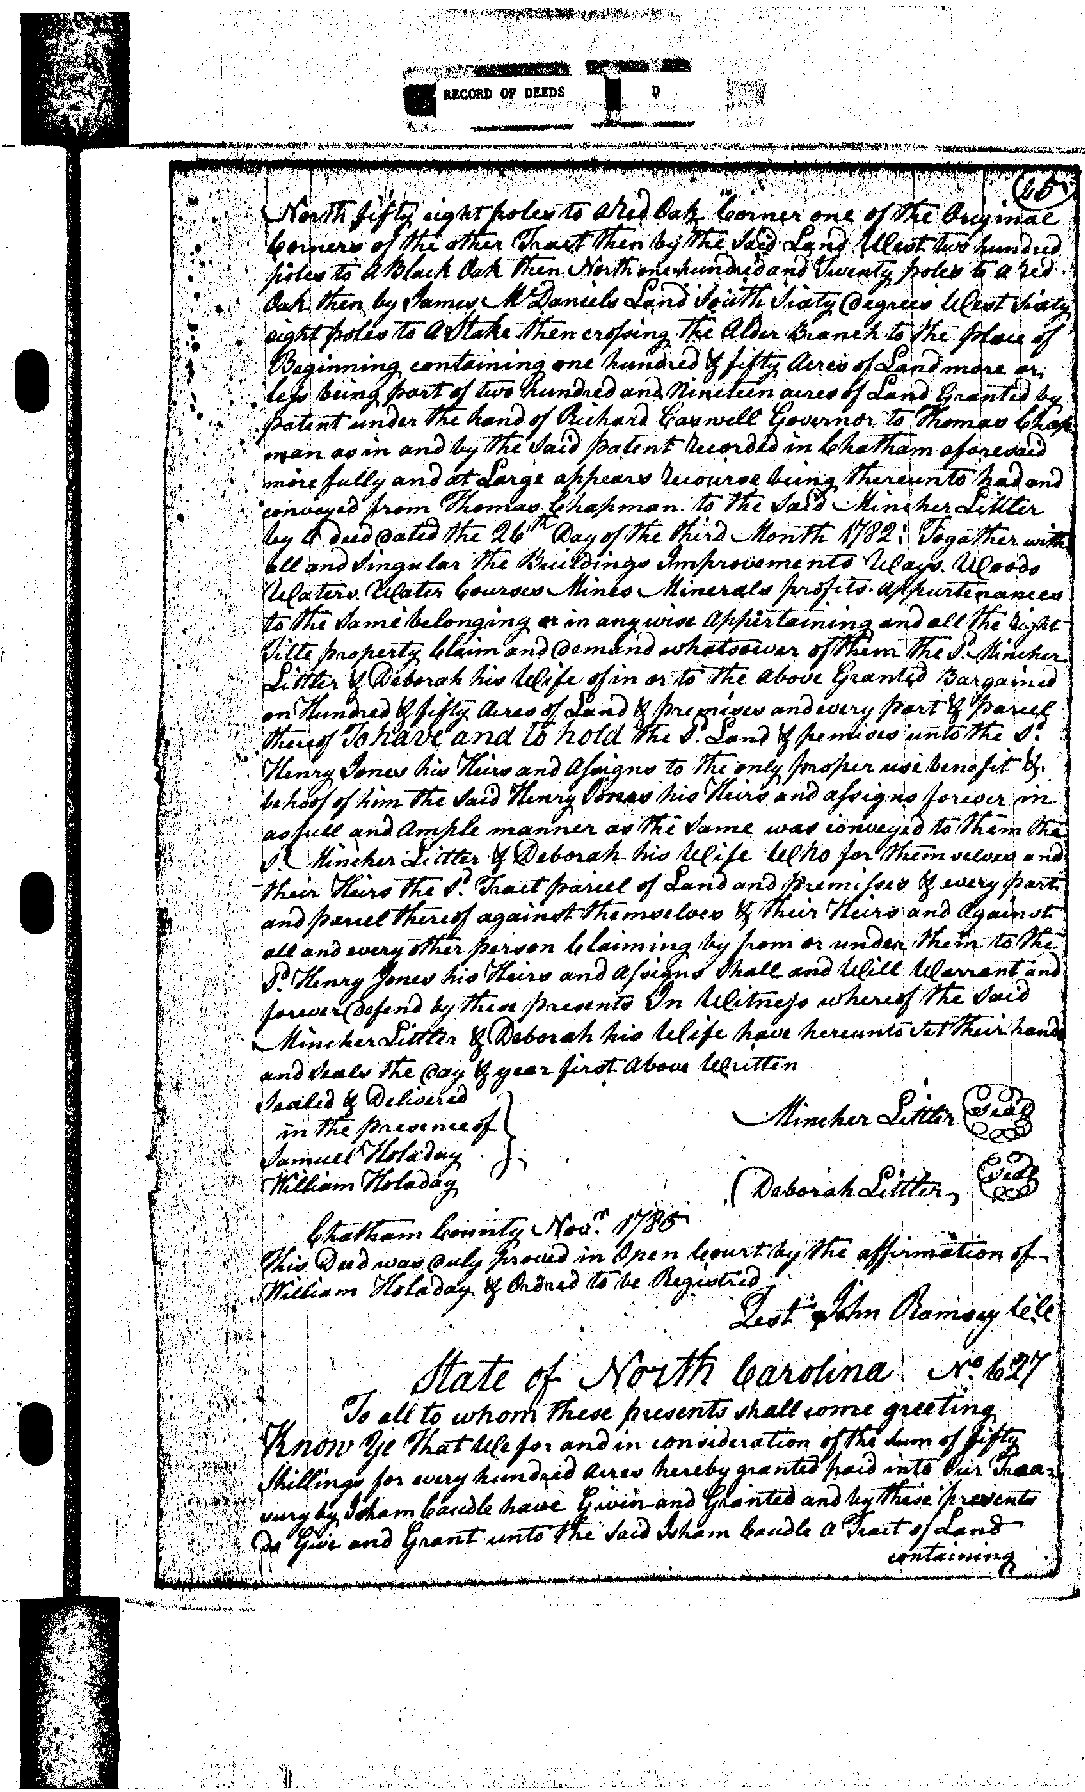 RECORD OF DEEDS D
65
North fifty eight poles to a Red Oak Corner one of the Original
Corners of the other Tract then by the Said Land West two hundred
poles to a Black Oak then North one hundred and Twenty poles to a red
Oak then by James McDaniels Land South Sixty Degrees West Sixty
eight poles to a Stake then crossing the Alder Branch to the place of
Beginning containing one hundred & fifty Acres of Land more or
less being part of two hundred and Nineteen acres of Land Granted by
patent under the hand of Richard Caswell Governor to Thomas Chap
man as in and by the Said patent Recorded in Chatham aforesaid
more fully and at Large appears recourse being thereunto had and
conveyed from Thomas Chapman to the Said Mincher Littler
by a deed dated the 26th Day of the third Month 1782: Together with
all and Singular the Buildings Improvements Ways Woods
Waters Water Courses Mines Minerals profits appurtenances
to the Same belonging or in any wise Appertaining and all the right
Title property Claim and Demand whatsoever of them the Sd. Mincher
Littler & Deborah his Wife of in or to the above Granted Bargained
on Hundred & fifty Acres of Land & premises and every part & parcel
thereof To have and to hold the Sd. Land & premises unto the Sd.
Henry Jones his Heirs and Assigns to the only proper use benefit &
behoof of him the Said Henry Jones his Heirs and assigns forever in
as full and Ample manner as the Same was conveyed to them the
Sd. Mincher Littler & Deborah his Wife Who for themselves and
their Heirs the Sd. Tract parcel of Land and premisses & every part
and parcel thereof against themselves & their Heirs and Against
all and every other person Claiming by from or under them to the
Sd. Henry Jones his Heirs and Assigns Shall and Will Warrant and
forever defend by these presents In Witness whereof the Said
Mincher Littler & Deborah his Wife have hereunto Set their hands
and Seals the Day & year first Above Written
Sealed & Delivered
in the presence of
Samuel Holaday
William Holaday
Mincher Littler Seal
Deborah Littler Seal
Chatham County Novr. 1785
This Deed was duly proved in Open Court by the affirmation of
William Holaday & Ordred to be Registred
Test John Ramsey C.C.
State of North Carolina No. 627
To all to whom these presents shall come greeting
Know Ye That We for and in consideration of the Sum of fifty
Shillings for every hundred Acres hereby granted paid into Our Trea-
sury by Isham Caudle have Given and Granted and by these presents
Do Give and Grant unto the Said Isham Caudle a Tract of Land
containing